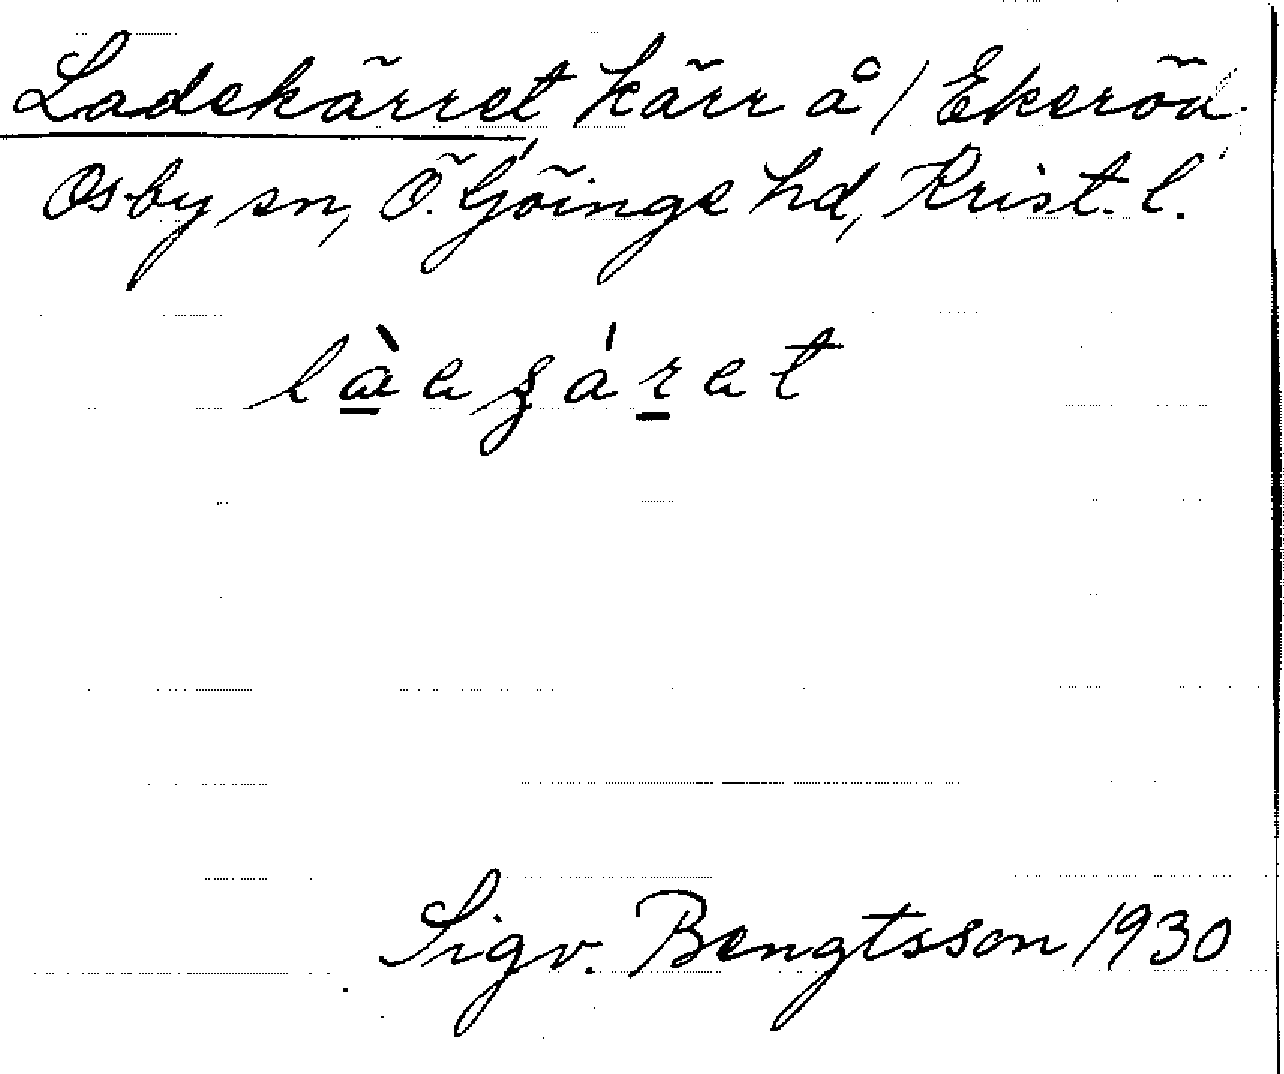 Ladekärret kärr å / Ekeröd
Osby sn, Ö. Göinge hd, Krist. l.
làeʂáret
Sigv. Bengtsson 1930